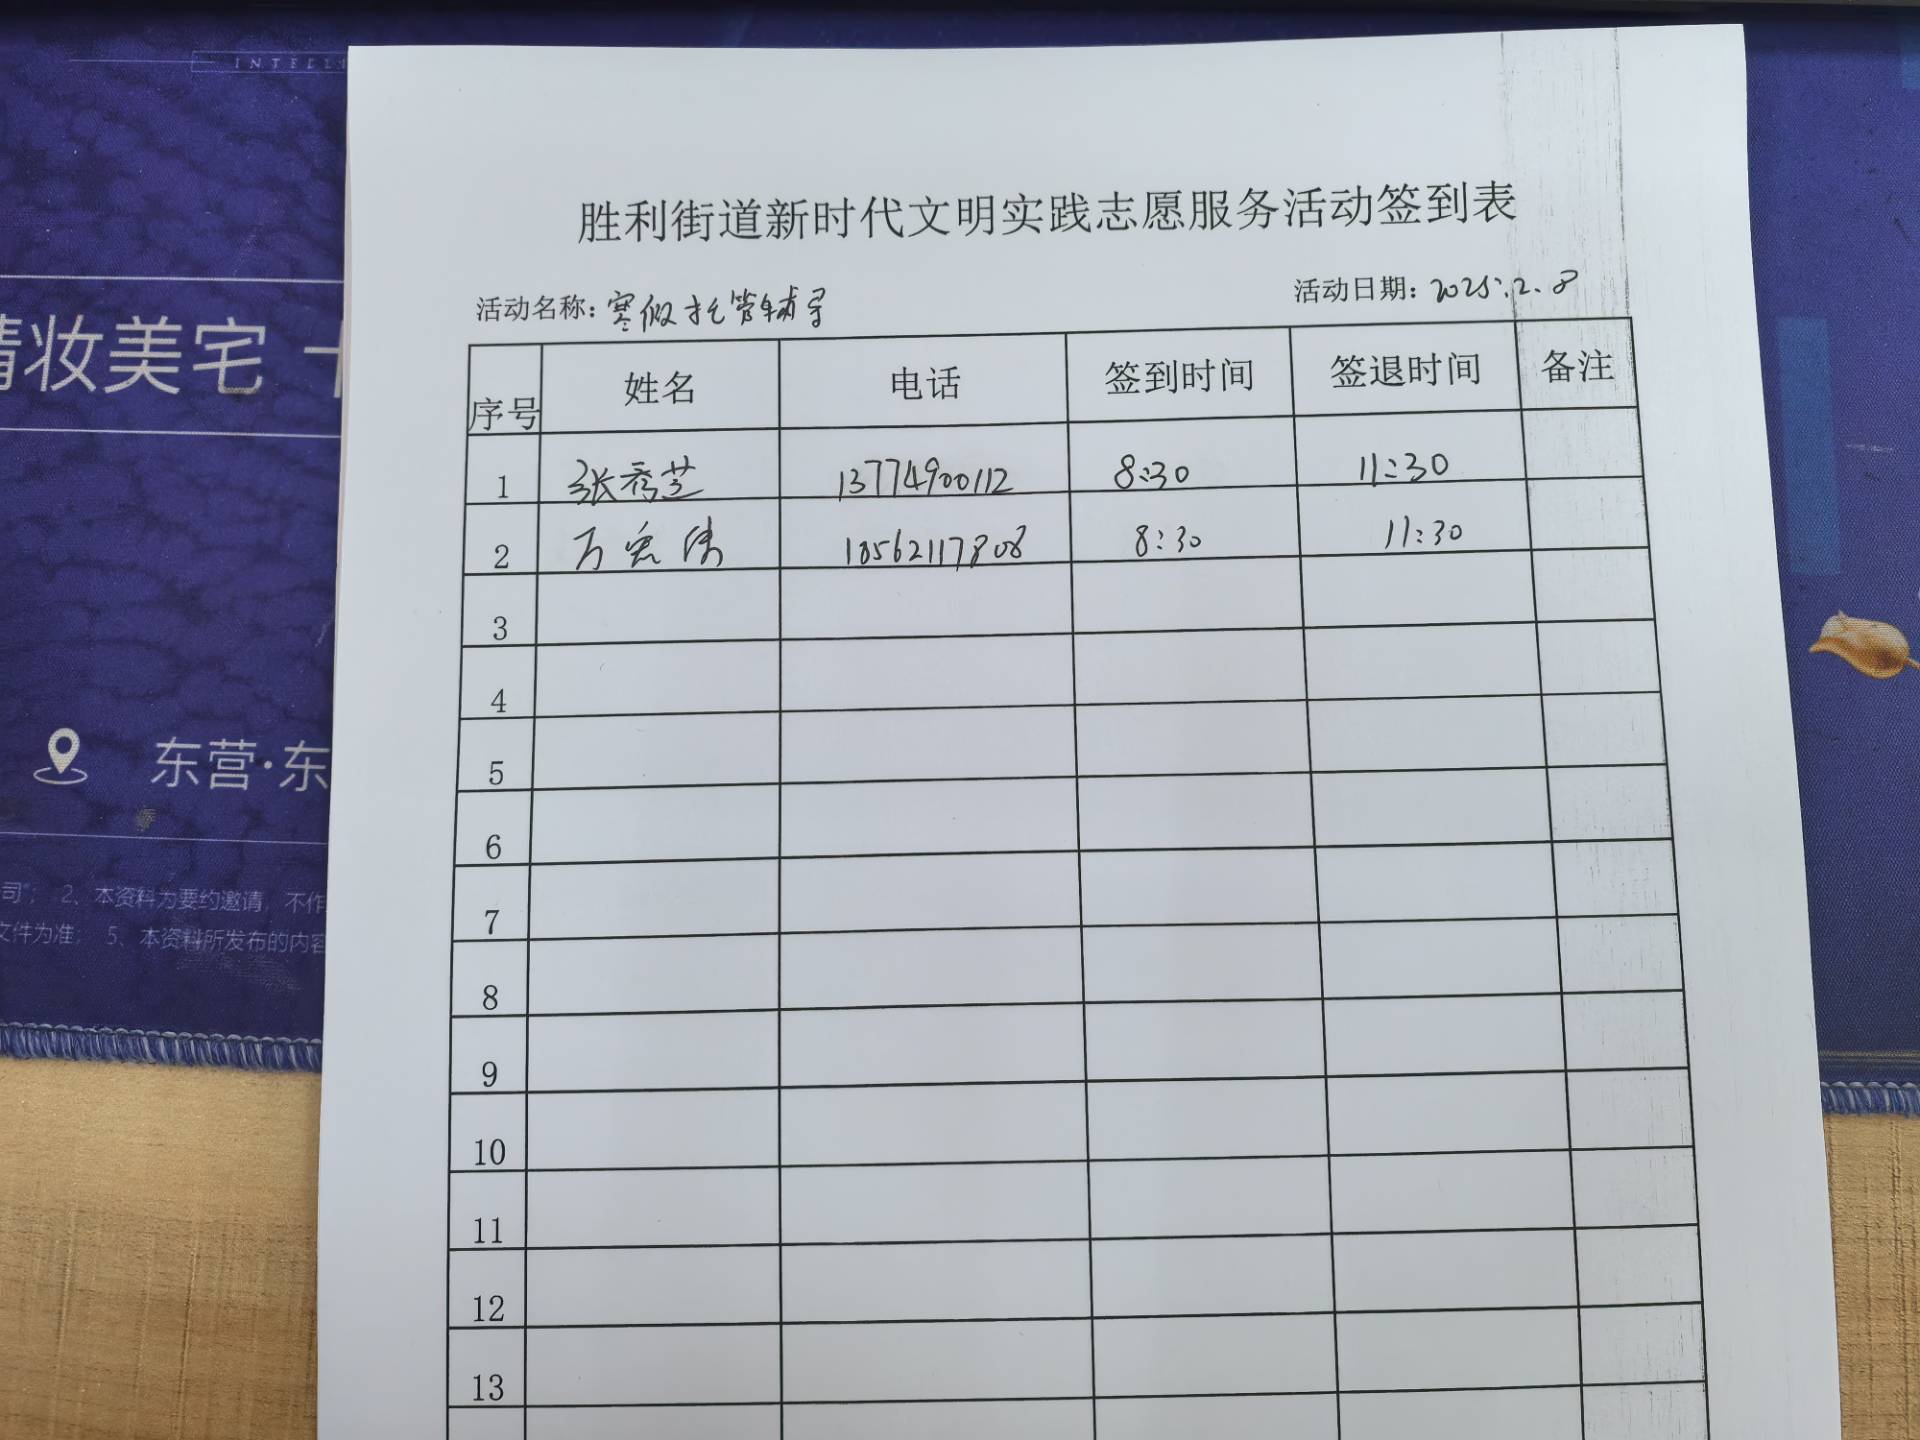 INTELL
精妆美宅
东营·东
司"； 2、本资料为要约邀请，不作
文件为准； 5、本资料所发布的内容
胜利街道新时代文明实践志愿服务活动签到表
活动名称：寒假托管辅导 活动日期：2025.2.8
序号 姓名 电话 签到时间 签退时间 备注
1 张秀芝 13774900112 8:30 11:30
2 万宏伟 18562117808 8:30 11:30
3
4
5
6
7
8
9
10
11
12
13